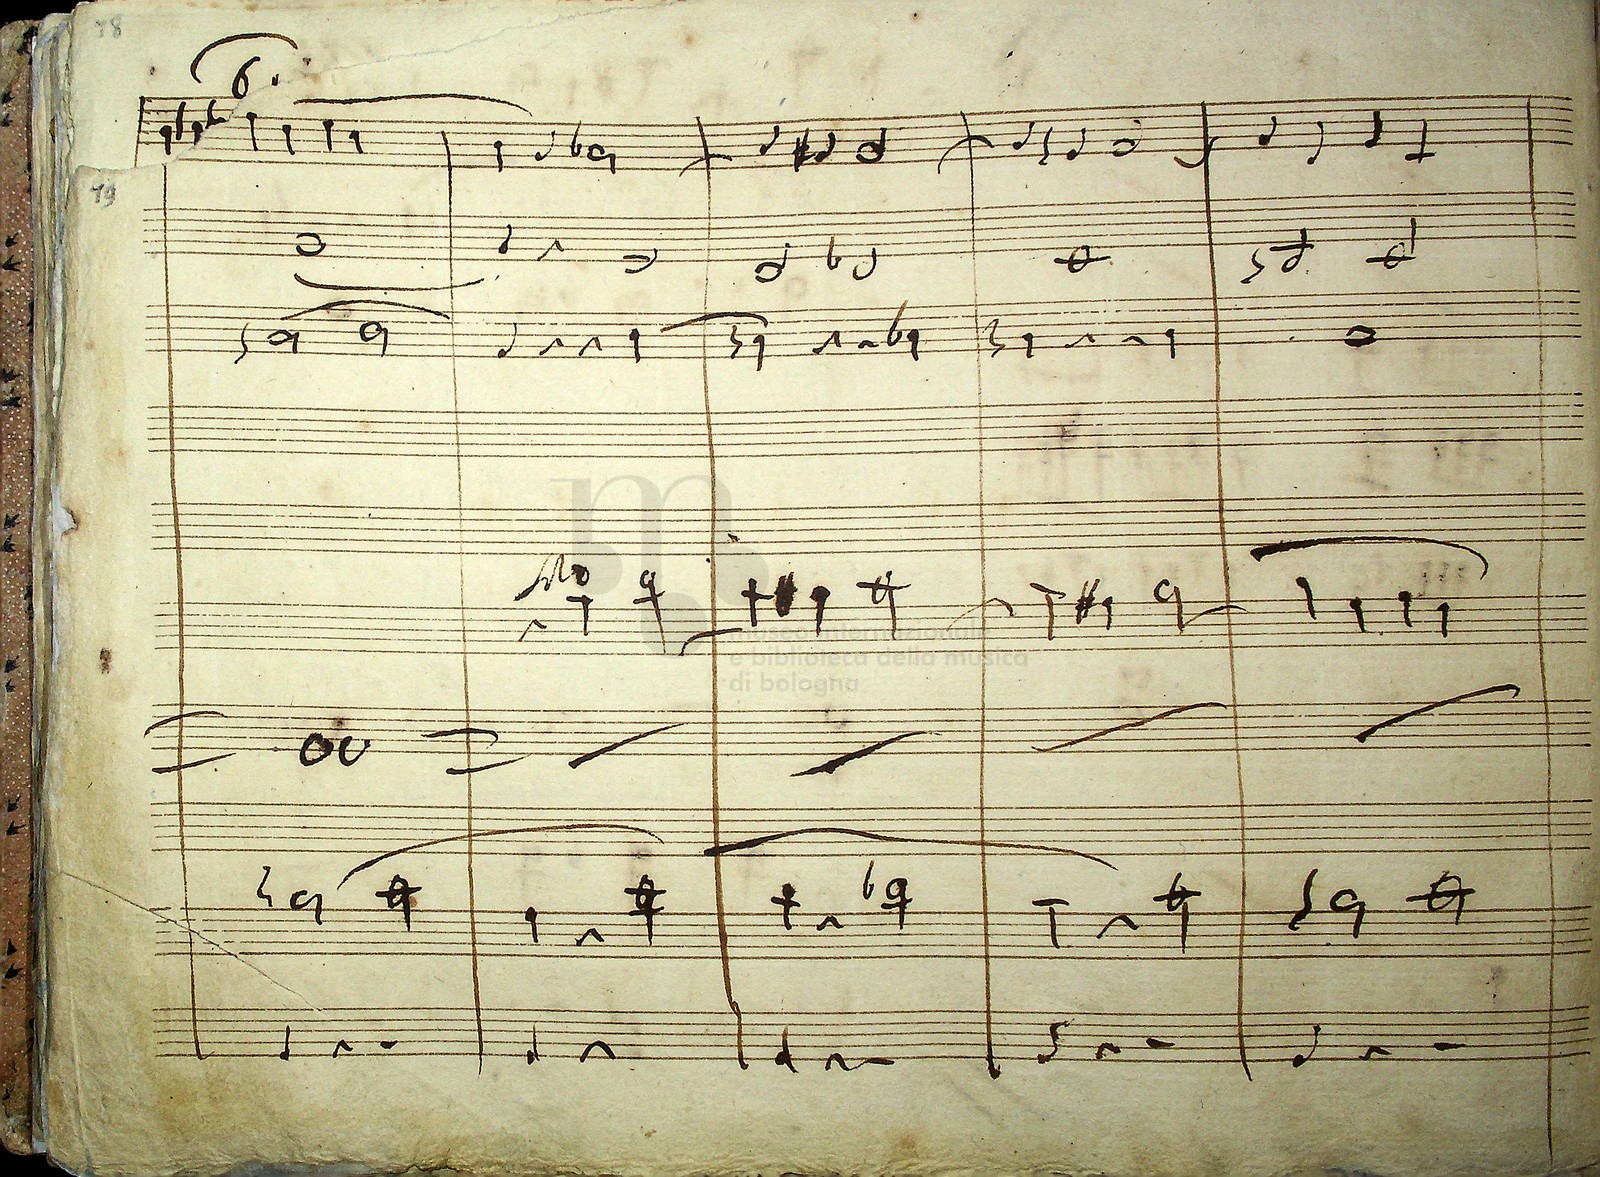 78
6.
79
museo internazionale
e biblioteca della musica
di bologna